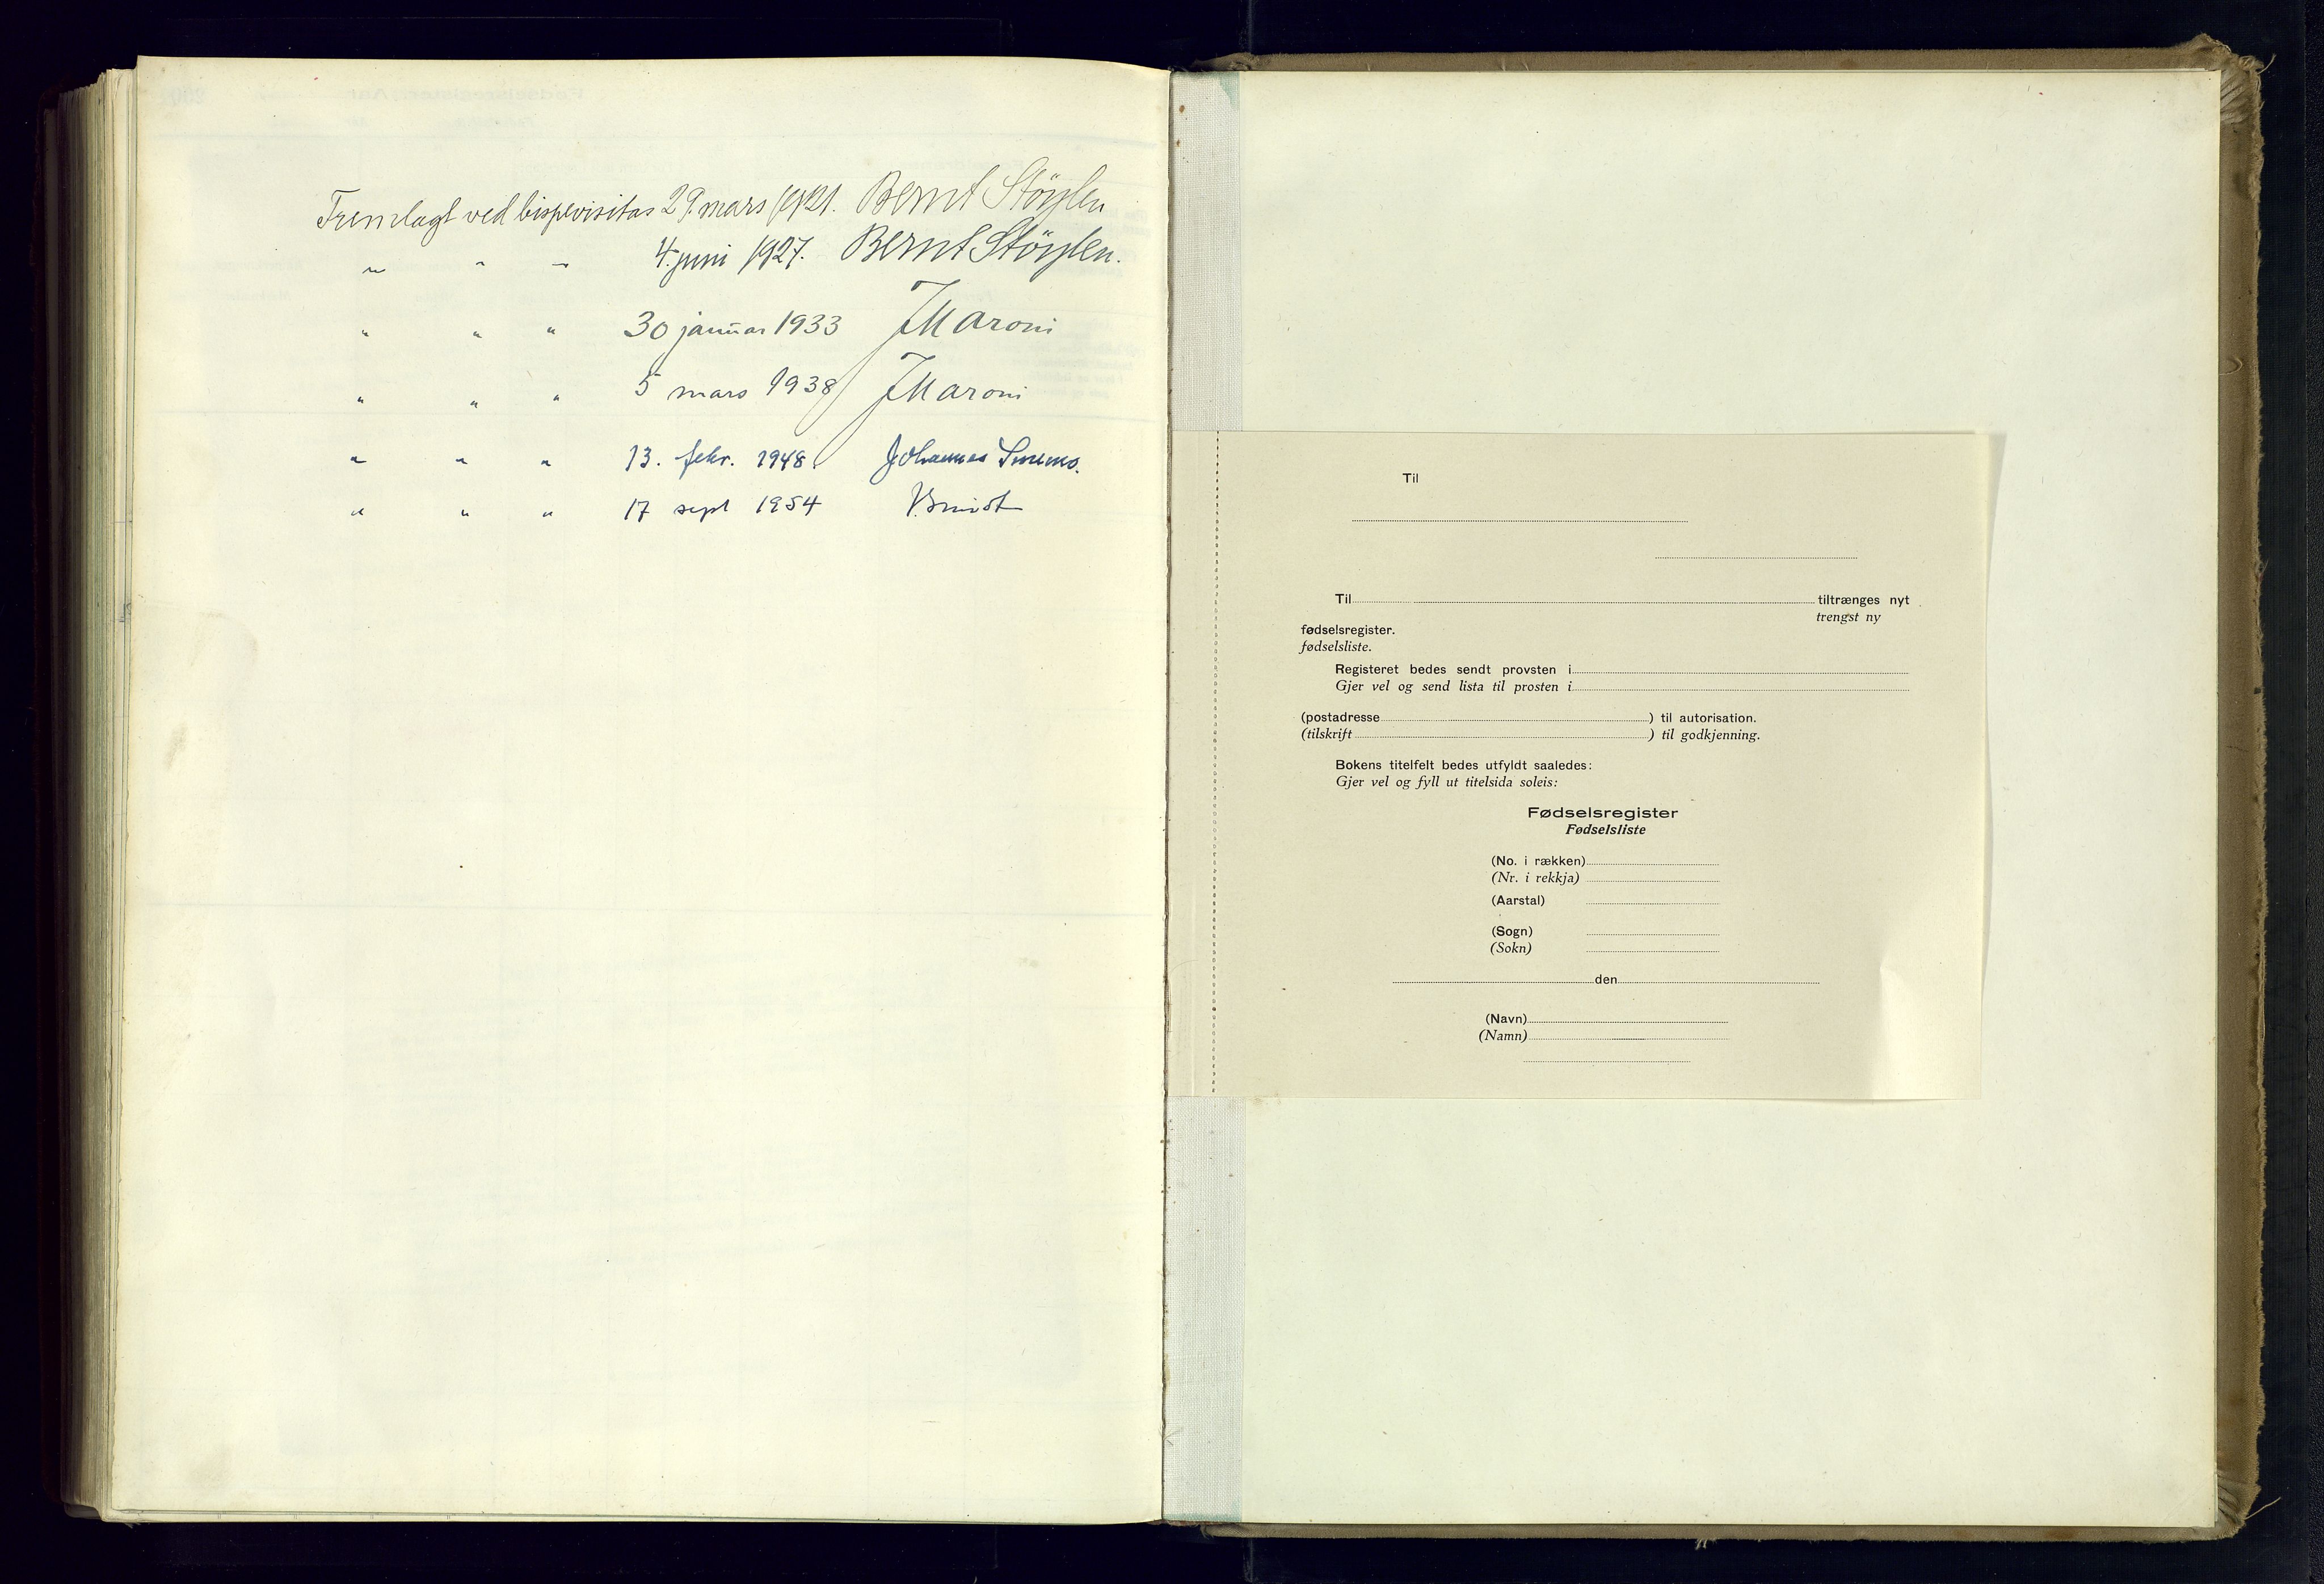 Fremlagt ved bispevisitas 29. mars 1921. Bernt Støylen
" " " 4. juni 1927. Bernt Støylen.
" " " 30 januar 1933 J Maroni
" " " 5 mars 1938 J Maroni
" " " 13. febr. 1948. Johannes Smemo.
" " " 17 sept 1954
Til
Til tiltrænges nyt
trengst ny
fødselsregister.
fødselsliste.
Registeret bedes sendt provsten i
Gjer vel og send lista til prosten i
(postadresse ) til autorisation.
(tilskrift ) til godkjenning.
Bokens titelfelt bedes utfyldt saaledes:
Gjer vel og fyll ut titelsida soleis:
Fødselsregister
Fødselsliste
(No. i rækken)
(Nr. i rekkja)
(Aarstal)
(Sogn)
(Sokn)
den
(Navn)
(Namn)